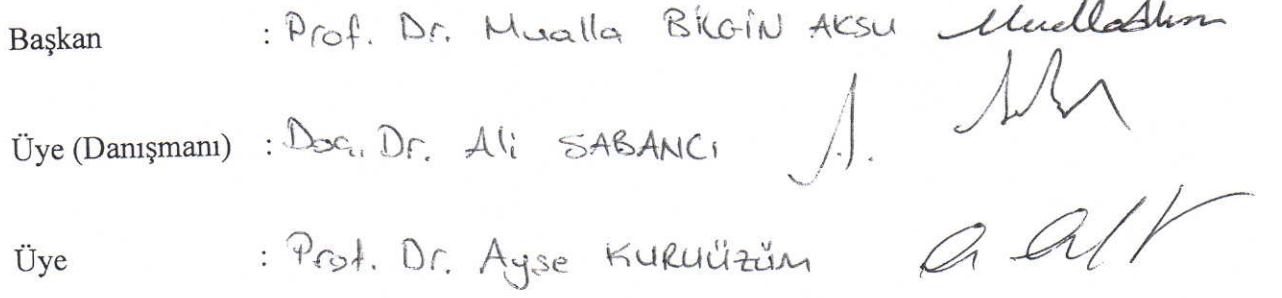 Başkan : Prof. Dr. Mualla BİLGİN AKSU
Üye (Danışmanı) : Doç. Dr. Ali SABANCI
Üye : Prof. Dr. Ayşe KURUÜZÜM